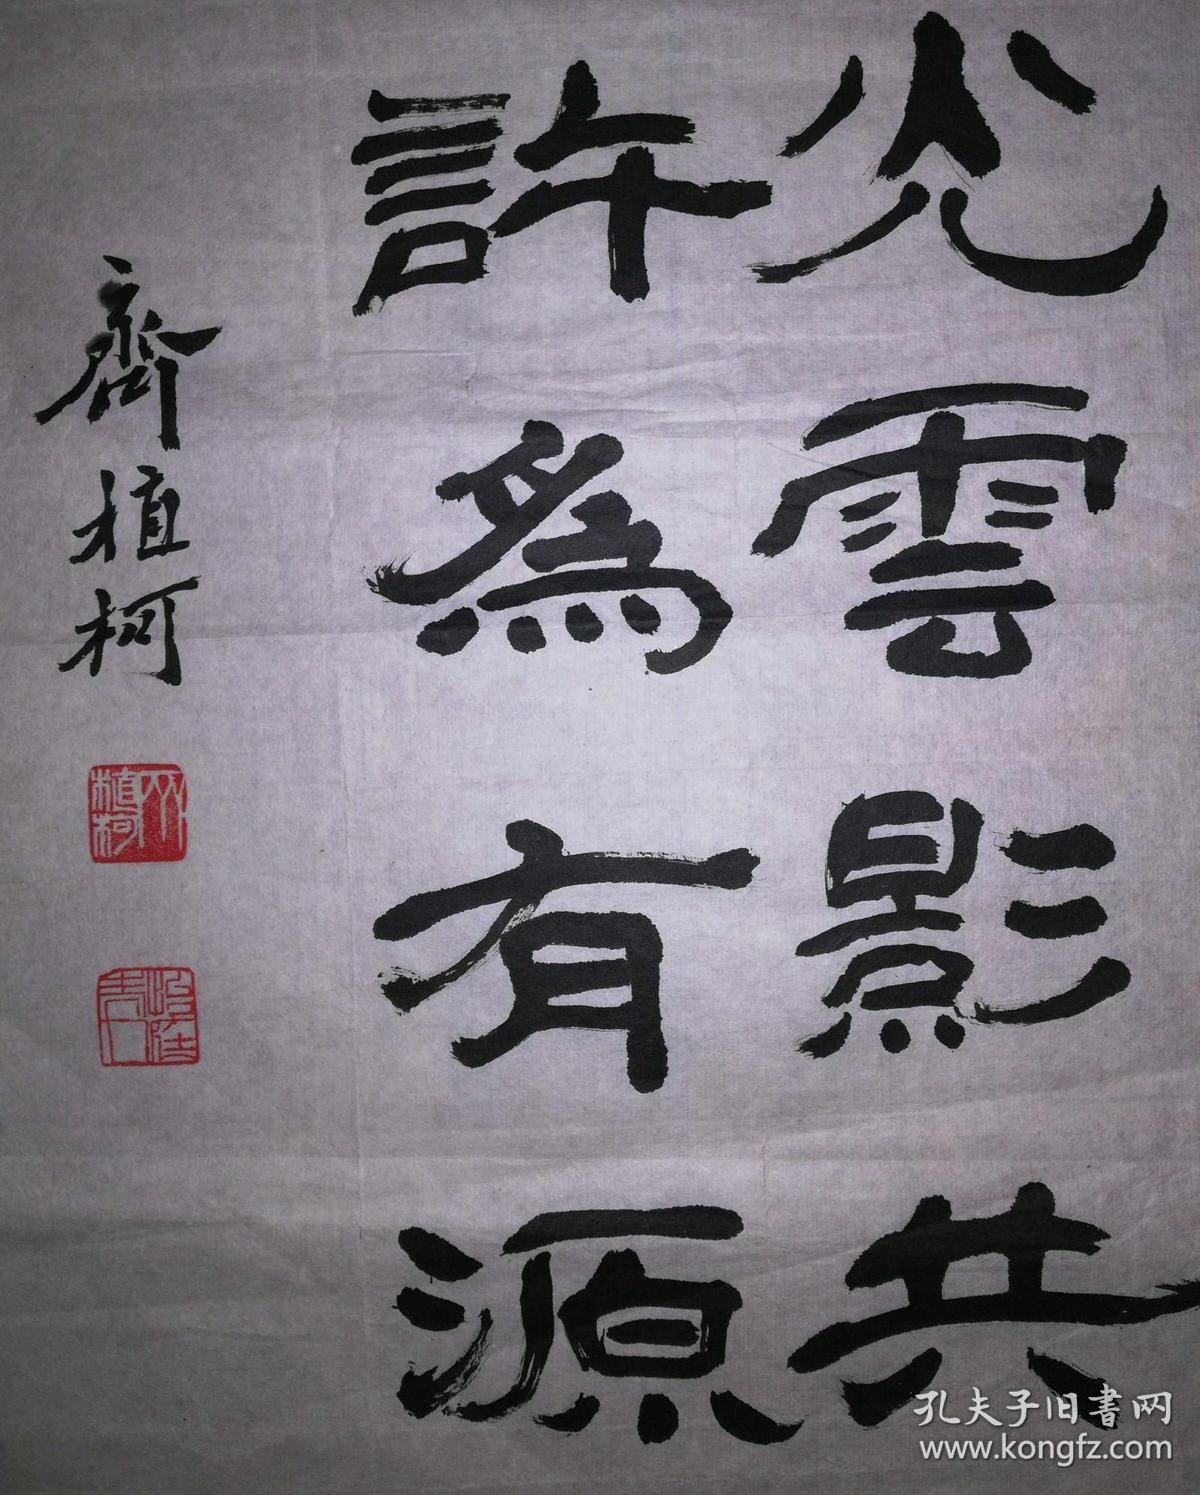 光雲影共
許為有源
齊植柯
植柯
孔夫子旧書网
www.kongfz.com